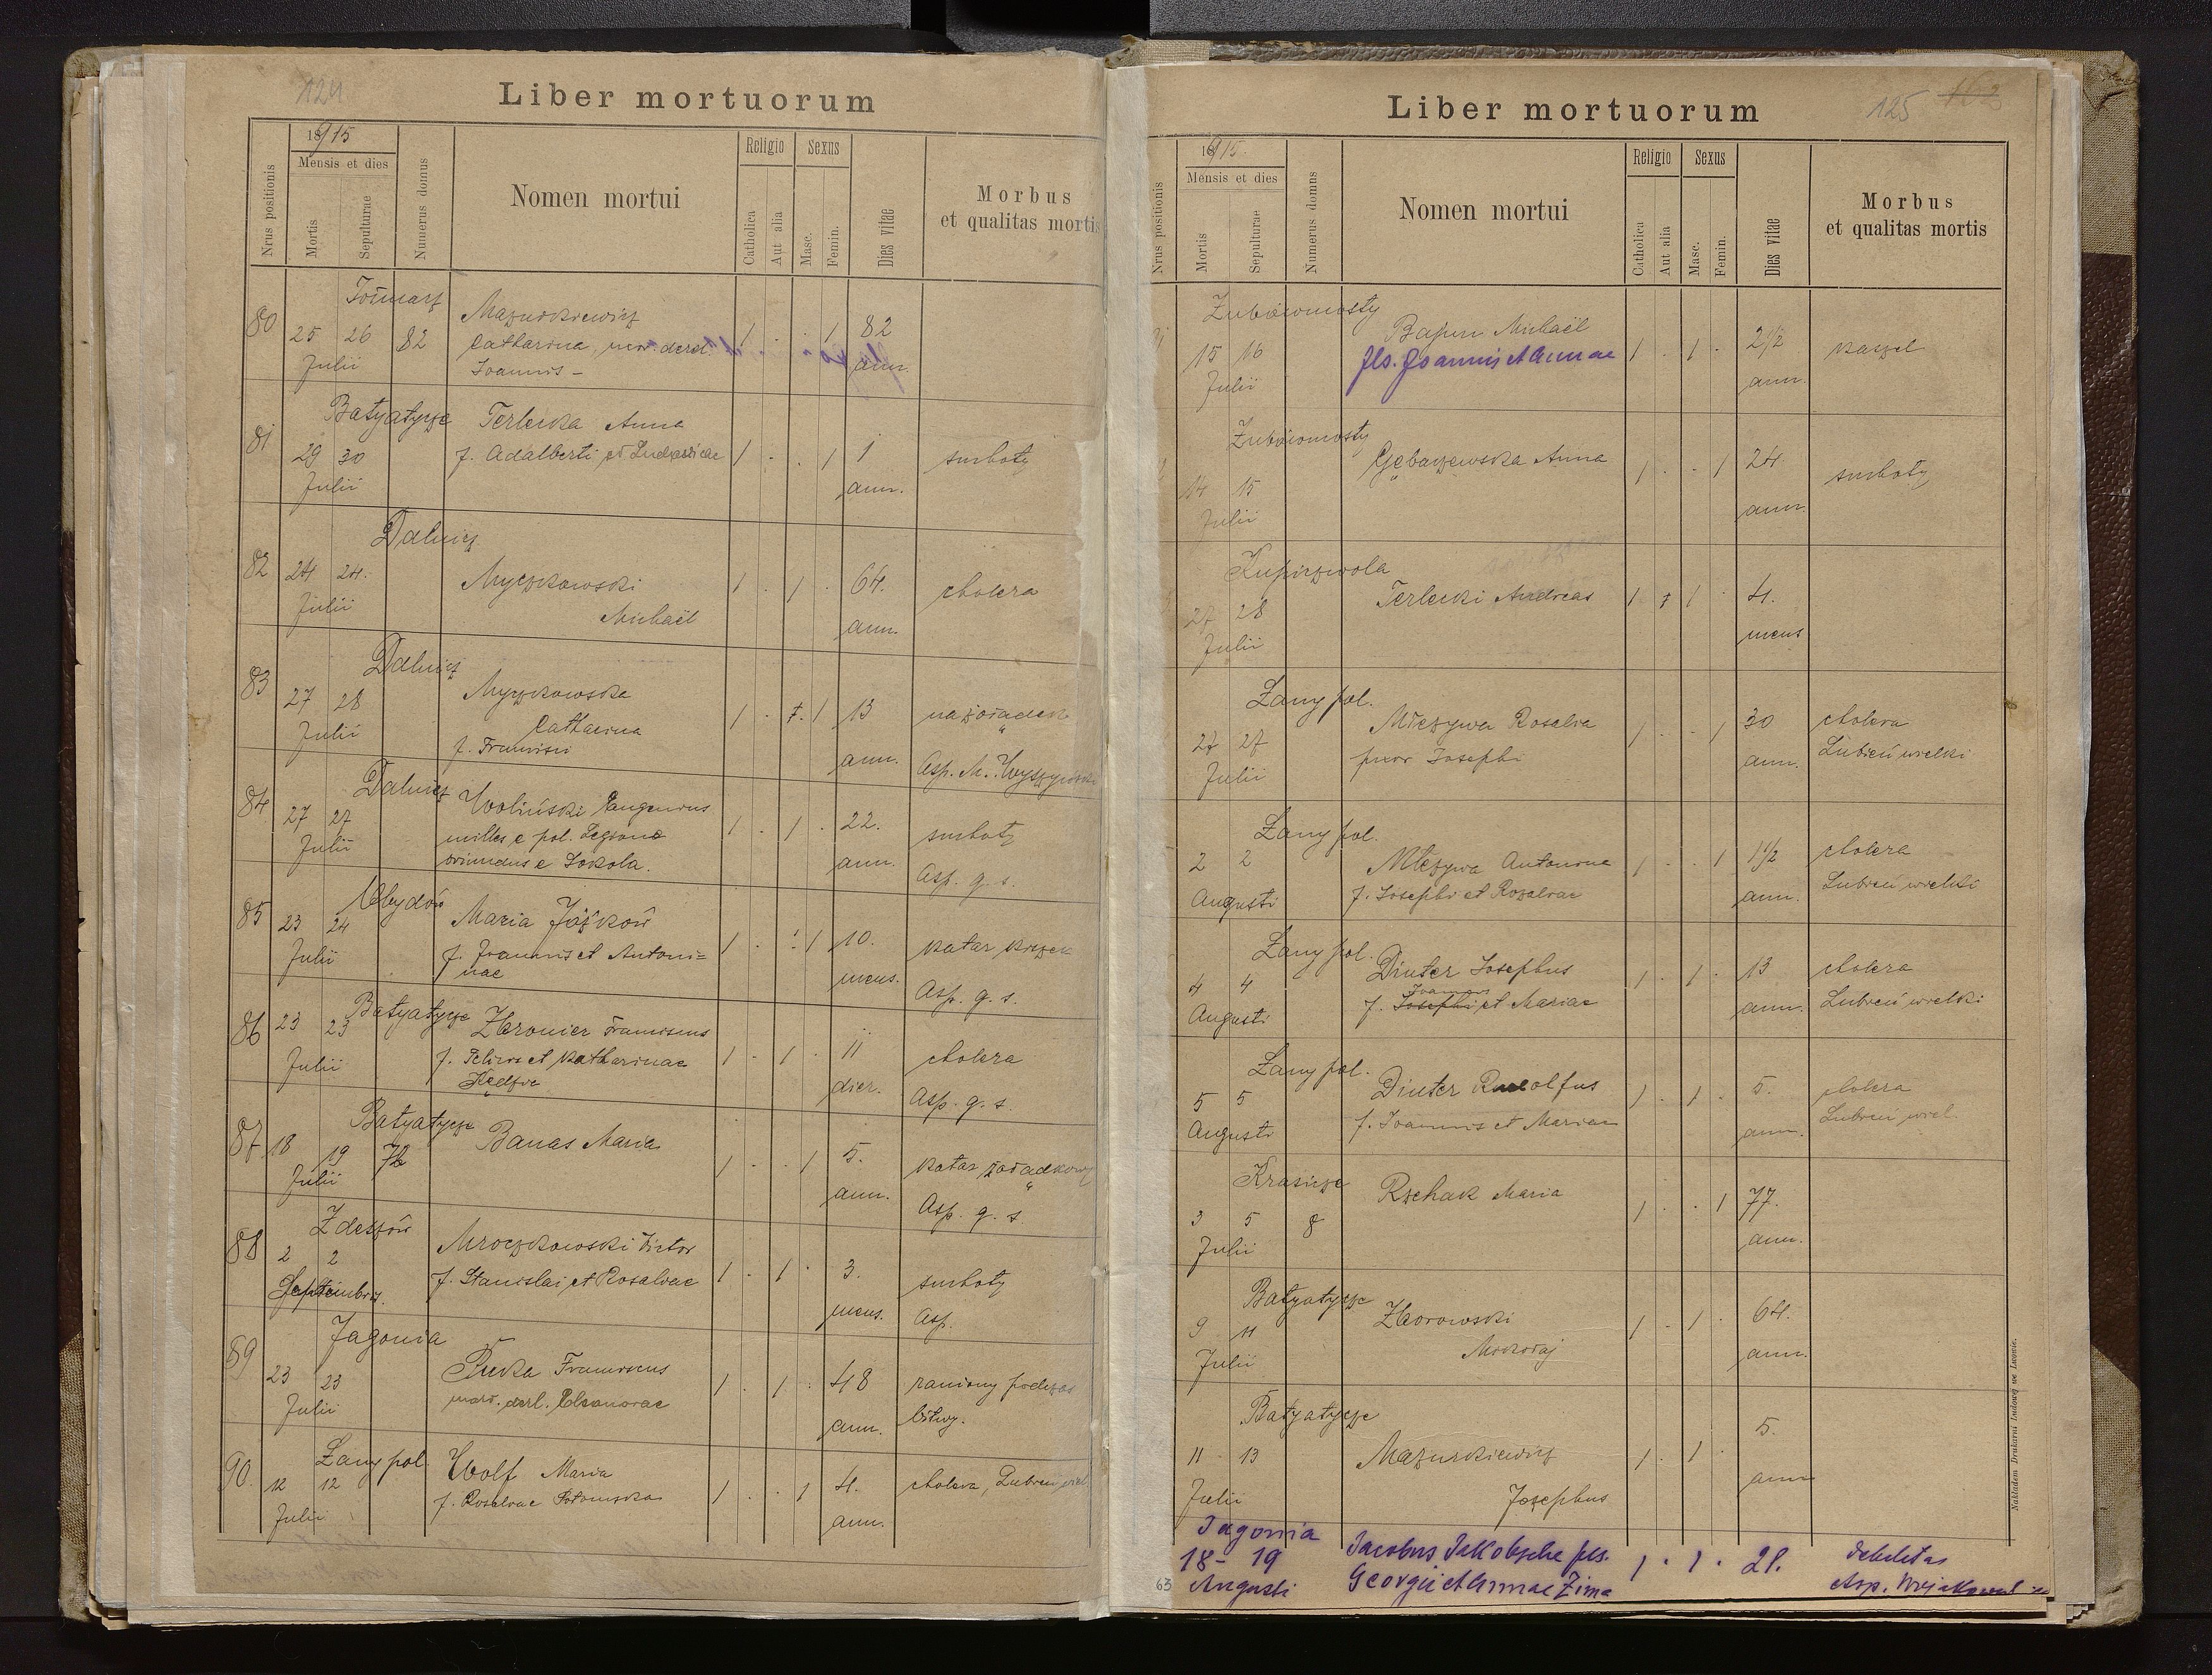 124
Liber mortuorum
Nrus positionis
1915
Mensis et dies
Mortis
Sepulturae
Numerus domus
Nomen mortui
Religio
Catholica
Aut alia
Sexus
Masc.
Femin.
Dies vitae
Morbus
et qualitas mortis
80
25 26 82
Julii
Mazurkiewicz
Catharina
Joannis -
1 . . 1 82
ann.
Batyatycze
81
29 30
Julii
Terlecka Anna
f. Adalberti et Ludovicae
1 . . 1 1
ann.
suchoty
Dalnicz
82 24 24.
Julii
Myczkowski
Michaël
1 . 1 . 64.
ann.
cholera
Dalnicz
83
27 28
Julii
Myczkowska
Catharina
f. Francisci
1 . . 1 13
ann.
na żołądek
Asp. M.
Dalnicz
84
27 27
Julii
Woliński Eugenius
milles e pol. Legiono
oriundus e Sokola.
1 . 1 . 22.
ann.
suchoty
Asp. q. s.
85 23 24
Julii
Maria
f. Joannis et Antoni=
nae
1 . . 1 10.
mens.
katar kiszek
Asp. q. s.
Batyatycze
86 23 23
Julii
Franciscus
f. Felicis et Katharinae
1 . 1 . 11
dier.
cholera
Asp. q. s.
Batyatycze
87. 18 19
Julii
Banas Maria
1 . . 1 5.
ann.
katar żołądkowy
Asp. q. s
Zdeszów
88 2 2
Septembris.
Mroczkowski Victor
f. Stanislai et Rosaliae
1 . 1 . 3.
mens.
suchoty
Asp.
Jagonia
89
23 23
Julii
Franciscus
Eleonorae
1 . 1 . 48
ann.
raniony podczas
bitwy.
Łany pol.
90. 12 12
Julii
Wolf Maria
f. Rosaliae
1 . . 1 4.
ann.
cholera, Lubień wiel
125 162
Liber mortuorum
Nrus positionis
1915.
Mensis et dies
Mortis
Sepulturae
Numerus domus
Nomen mortui
Religio
Catholica
Aut alia
Sexus
Masc.
Femin.
Dies vitae
Morbus
et qualitas mortis
Żubómosty
15 16
Julii
Michaël
fls. Joannis et Annae
1 . 1 . 2 1/2
ann.
kaszel
Żubómosty
14 15
Julii
Gębaczewska Anna
1 . . 1 24
ann.
suchoty
Kupiczwola
27 28
Julii
Terlecki Andreas
1 . 1 . 4.
mens
Łany pol.
27 27
Julii
Mleczywa Rosalia
uxor Josephi
1 . . 1 30
ann.
cholera
Lubień wielki
Łany pol.
2 2
Augusti
Mleczywa Antonina
f. Josephi et Rosaliae
1 . . 1 1 1/2
ann.
cholera
Lubień wielki
Łany pol.
4 4
Augusti
Dinter Josephus
Joannis
f. Josephi et Mariae
1 . 1 . 13
ann.
cholera
Lubień wielki
Łany pol.
5 5
Augusti
Dinter Rudolfus
f. Joannis et Mariae
1 . 1 . 5.
ann.
cholera
Lubień wiel.
Krasicze
3 5 8
Julii
Rzehak Maria
1 . . 1 77.
ann.
Batyatycze
9 11
Julii
Zborowski
Mikołaj
1 . 1 . 64.
ann.
Batyatycze
11 13
Julii
Mazurkiewicz
Josephus
1 . 1 .
5.
ann
Jagonia
18 - 19
Augusti
Jacobus Jakobsche fls.
Georgii et Annae Zima
1 . 1 . 21.
debilitas
Asp.
63
Nakładem Drukarni Ludowej we Lwowie.